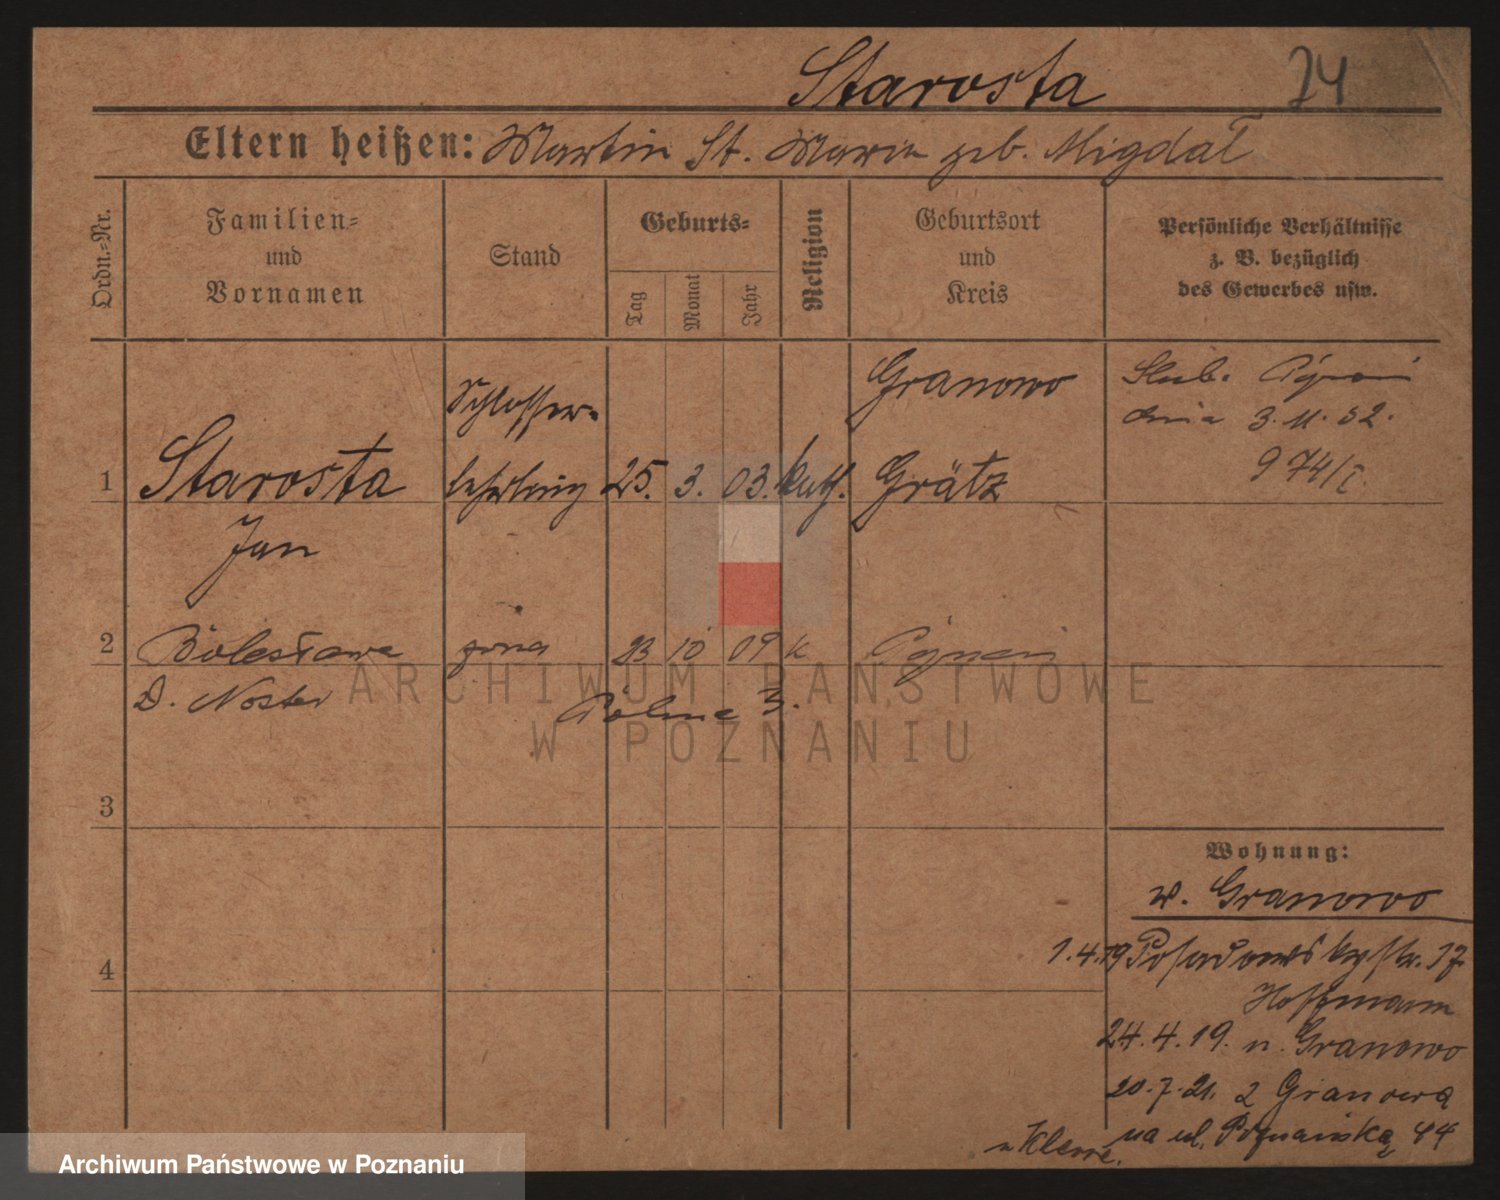 Starosta 74
Eltern heißen: Martin St. Maria geb. Migdał
Ordn.-Nr.
Familien-
und
Vornamen
Stand
Geburts-
Tag
Monat
Jahr
Religion
Geburtsort
und
Kreis
Persönliche Verhältnisse
z. B. bezüglich
des Gewerbes usw.
Schlosser-
Granowo
dnia 3.11.32.
1 Starosta lehrling 25. 3. 03. kath. Grätz
974/I.
Jan
2 Bolesława żona 23 10 09 k
D. Noster
Polna 3.
ARCHIWUM PAŃSTWOWE
W POZNANIU
3
Wohnung:
v. Granowo
4
1.4.19 Posadowskystr. 17
Hoffmann
24.4.19. n. Granowo
20.7.21. z Granowa
na ul. Poznańską 44
Archiwum Państwowe w Poznaniu